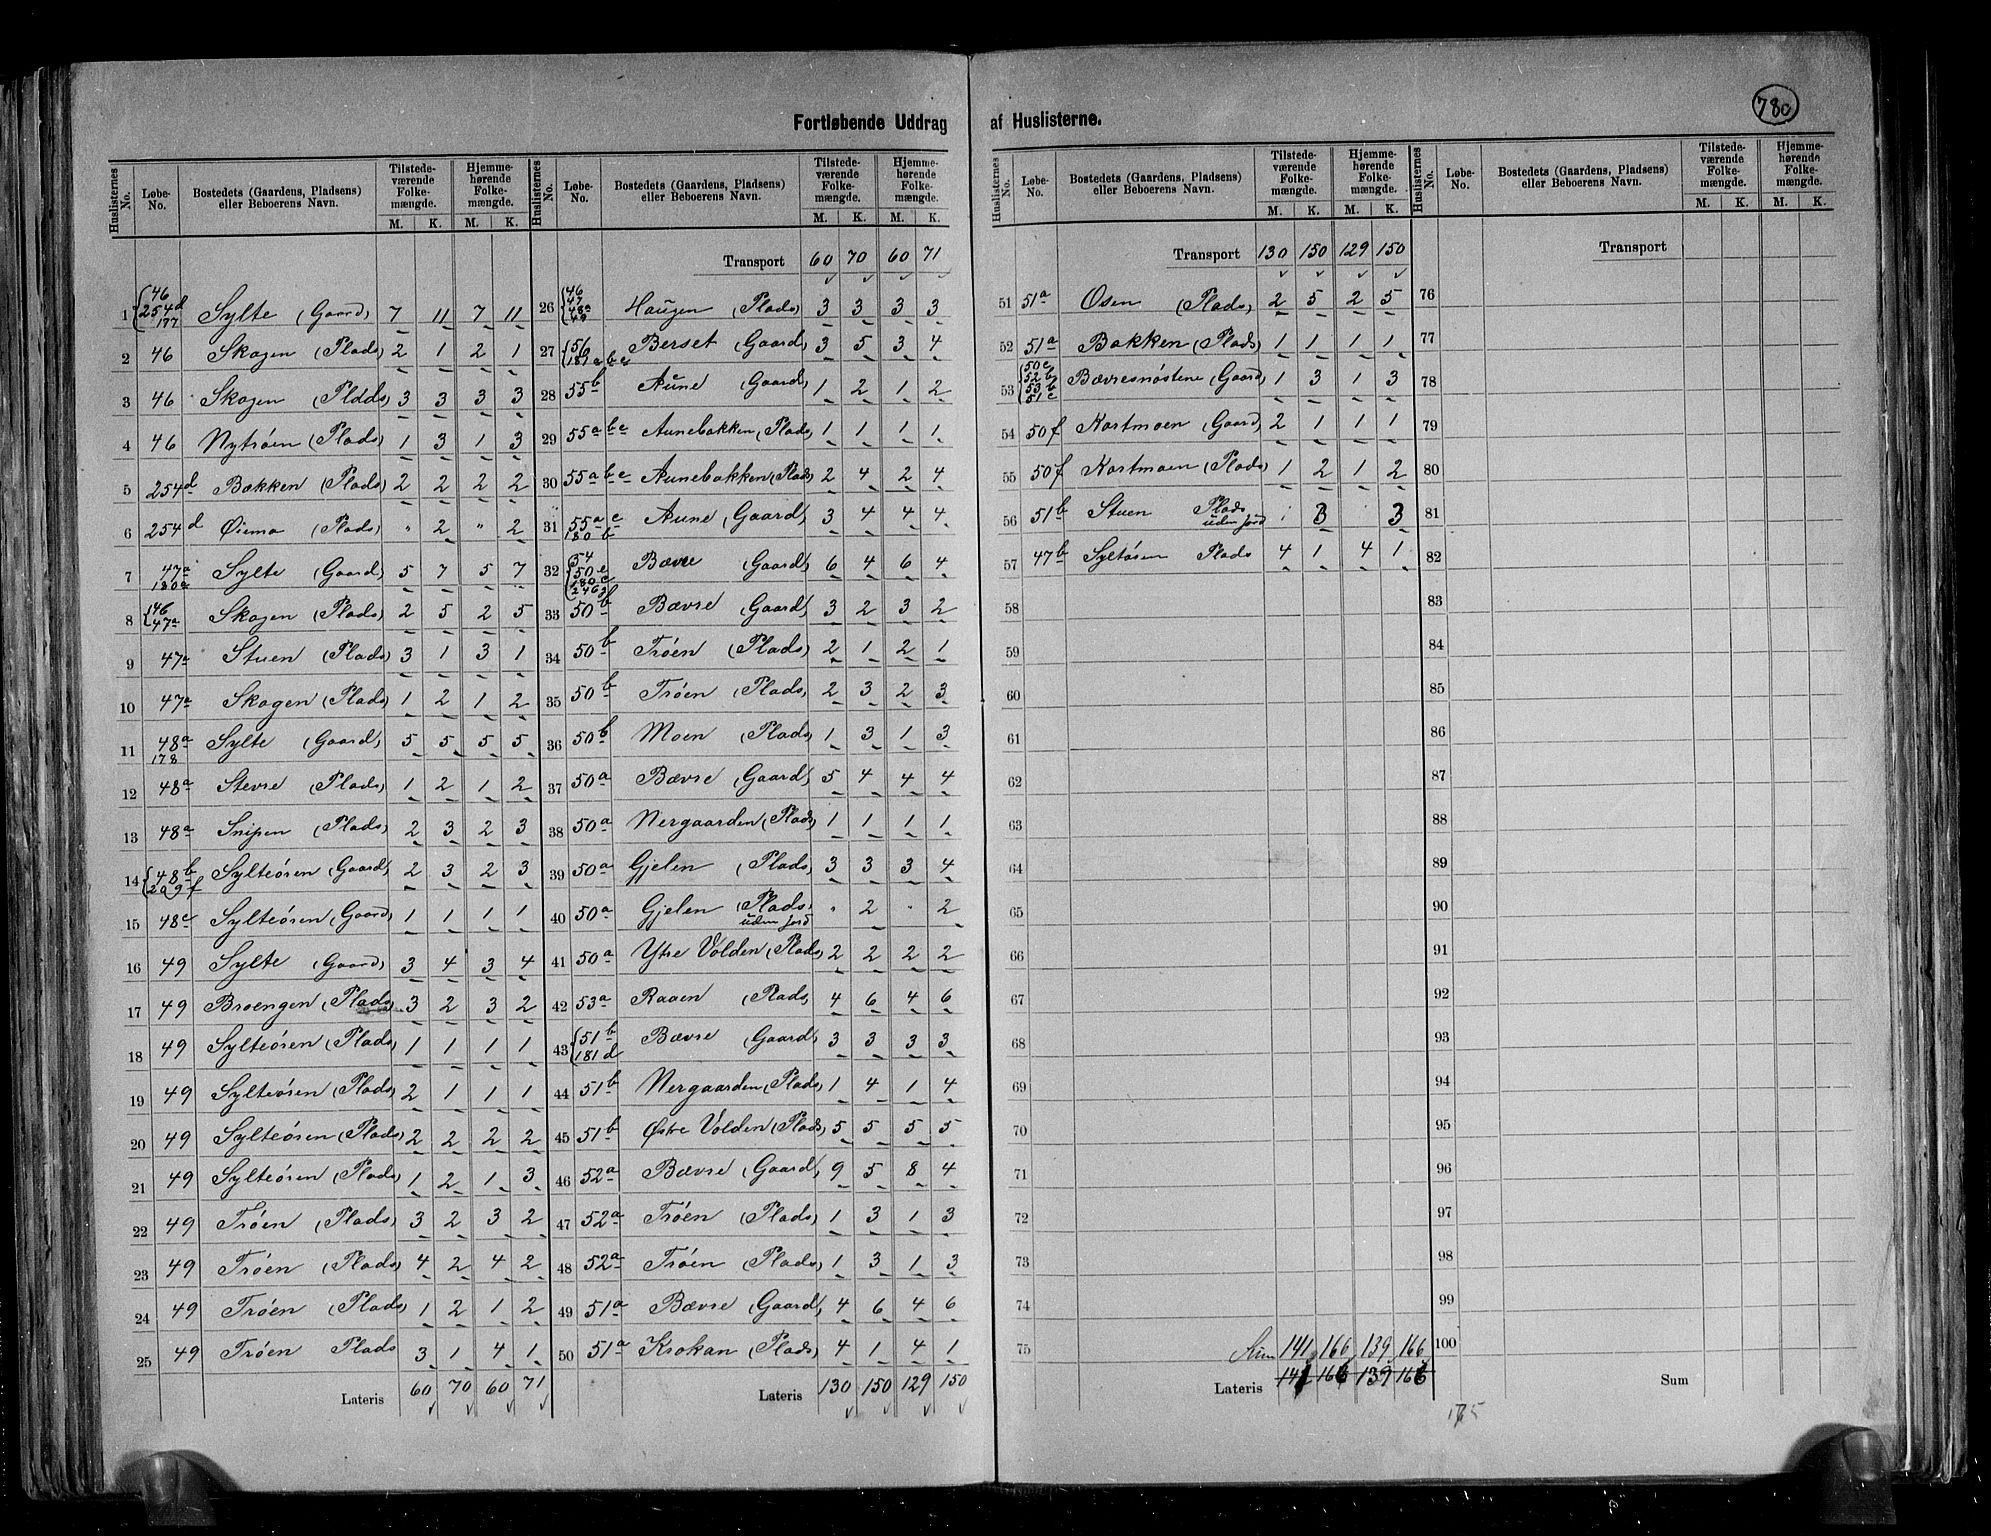 Fortløbende Uddrag af Huslisterne.
780
Huslisternes No. | Løbe-No. | Bostedets (Gaardens, Pladsens) eller Beboerens Navn. | Tilstede-værende Folke-mængde. M. K. | Hjemme-hørende Folke-mængde. M. K.
1 | 46 254d 177 | Sylte (Gaard) | 7 | 11 | 7 | 11
2 | 46 | Skogen (Plads) | 2 | 1 | 2 | 1
3 | 46 | Skogen (Plads) | 3 | 3 | 3 | 3
4 | 46 | Nytrøen (Plads) | 1 | 3 | 1 | 3
5 | 254d | Bakken (Plads) | 2 | 2 | 2 | 2
6 | 254d | Øiemo (Plads) | " | 2 | " | 2
7 | 47a 180a | Sylte (Gaard) | 5 | 7 | 5 | 7
8 | 46 47a | Skogen (Plads) | 2 | 5 | 2 | 5
9 | 47a | Stuen (Plads) | 3 | 1 | 3 | 1
10 | 47a | Skogen (Plads) | 1 | 2 | 1 | 2
11 | 48a 178 | Sylte (Gaard) | 5 | 5 | 5 | 5
12 | 48a | Stevre (Plads) | 1 | 2 | 1 | 2
13 | 48a | Snipen (Plads) | 2 | 3 | 2 | 3
14 | 48b 209f | Sylteøren (Gaard) | 2 | 3 | 2 | 3
15 | 48c | Sylteøren (Gaard) | 1 | 1 | 1 | 1
16 | 49 | Sylte (Gaard) | 3 | 4 | 3 | 4
17 | 49 | Broengen (Plads) | 3 | 2 | 3 | 2
18 | 49 | Sylteøren (Plads) | 1 | 1 | 1 | 1
19 | 49 | Sylteøren (Plads) | 2 | 1 | 1 | 1
20 | 49 | Sylteøren (Plads) | 2 | 2 | 2 | 2
21 | 49 | Sylteøren (Plads) | 1 | 2 | 1 | 3
22 | 49 | Trøen (Plads) | 3 | 2 | 3 | 2
23 | 49 | Trøen (Plads) | 4 | 2 | 4 | 2
24 | 49 | Trøen (Plads) | 1 | 2 | 1 | 2
25 | 49 | Trøen Plads | 3 | 1 | 4 | 1
Lateris | 60 | 70 | 60 | 71
Huslisternes No. | Løbe-No. | Bostedets (Gaardens, Pladsens) eller Beboerens Navn. | Tilstede-værende Folke-mængde. M. K. | Hjemme-hørende Folke-mængde. M. K.
Transport | 60 | 70 | 60 | 71
26 | 46 47 48a 49 | Haugen (Plads) | 3 | 3 | 3 | 3
27 | 56 181abc | Berset (Gaard) | 3 | 5 | 3 | 4
28 | 55b | Aune (Gaard) | 1 | 2 | 1 | 2
29 | 55abc | Aunebakken (Plads) | 1 | 1 | 1 | 1
30 | 55abc | Aunebakken (Plads) | 2 | 4 | 2 | 4
31 | 55ac 180b | Aune (Gaard) | 3 | 4 | 4 | 4
32 | 54 50e 180c | Bævre (Gaard) | 6 | 4 | 6 | 4
33 | 50b | Bævre (Gaard) | 3 | 2 | 3 | 2
34 | 50b | Trøen (Plads) | 2 | 1 | 2 | 1
35 | 50b | Trøen (Plads) | 2 | 3 | 2 | 3
36 | 50b | Moen (Plads) | 1 | 3 | 1 | 3
37 | 50a | Bævre (Gaard) | 5 | 4 | 4 | 4
38 | 50a | Nergaarden (Plads) | 1 | 1 | 1 | 1
39 | 50a | Gjelen (Plads) | 3 | 3 | 3 | 4
40 | 50a | Gjelen (Plads) uden jord | " | 2 | " | 2
41 | 50a | Ytre Volden (Plads) | 2 | 2 | 2 | 2
42 | 53a | Raaen (Plads) | 4 | 6 | 4 | 6
43 | 51b 181d | Bævre (Gaard) | 3 | 3 | 3 | 3
44 | 51b | Nergaarden (Plads) | 1 | 4 | 1 | 4
45 | 51b | Østre Volden (Plads) | 5 | 5 | 5 | 5
46 | 52a | Bævre (Gaard) | 9 | 5 | 8 | 4
47 | 52a | Trøen (Plads) | 1 | 3 | 1 | 3
48 | 52a | Trøen (Plads) | 1 | 3 | 1 | 3
49 | 51a | Bævre (Gaard) | 4 | 6 | 4 | 6
50 | 51a | Krokan (Plads) | 4 | 1 | 4 | 1
Lateris | 130 | 150 | 129 | 150
Huslisternes No. | Løbe-No. | Bostedets (Gaardens, Pladsens) eller Beboerens Navn. | Tilstede-værende Folke-mængde. M. K. | Hjemme-hørende Folke-mængde. M. K.
Transport | 130 | 150 | 129 | 150
51 | 51a | Osen (Plads) | 2 | 5 | 2 | 5
52 | 51a | Bakken (Plads) | 1 | 1 | 1 | 1
53 | 50c 52b 53b 51c | Bævresnøstene (Gaard) | 1 | 3 | 1 | 3
54 | 50f | Kortmoen (Gaard) | 2 | 1 | 1 | 1
55 | 50f | Kortmoen (Plads) | 1 | 2 | 1 | 2
56 | 51b | Stuen Plads uden jord | | 3 | | 3
57 | 47b | Sylteøren Plads | 4 | 1 | 4 | 1
58
59
60
61
62
63
64
65
66
67
68
69
70
71
72
73
74
75
Sum | 141 | 166 | 139 | 166
Lateris | 141 | 166 | 139 | 166
Huslisternes No. | Løbe-No. | Bostedets (Gaardens, Pladsens) eller Beboerens Navn. | Tilstede-værende Folke-mængde. M. K. | Hjemme-hørende Folke-mængde. M. K.
Transport
76
77
78
79
80
81
82
83
84
85
86
87
88
89
90
91
92
93
94
95
96
97
98
99
100
Sum